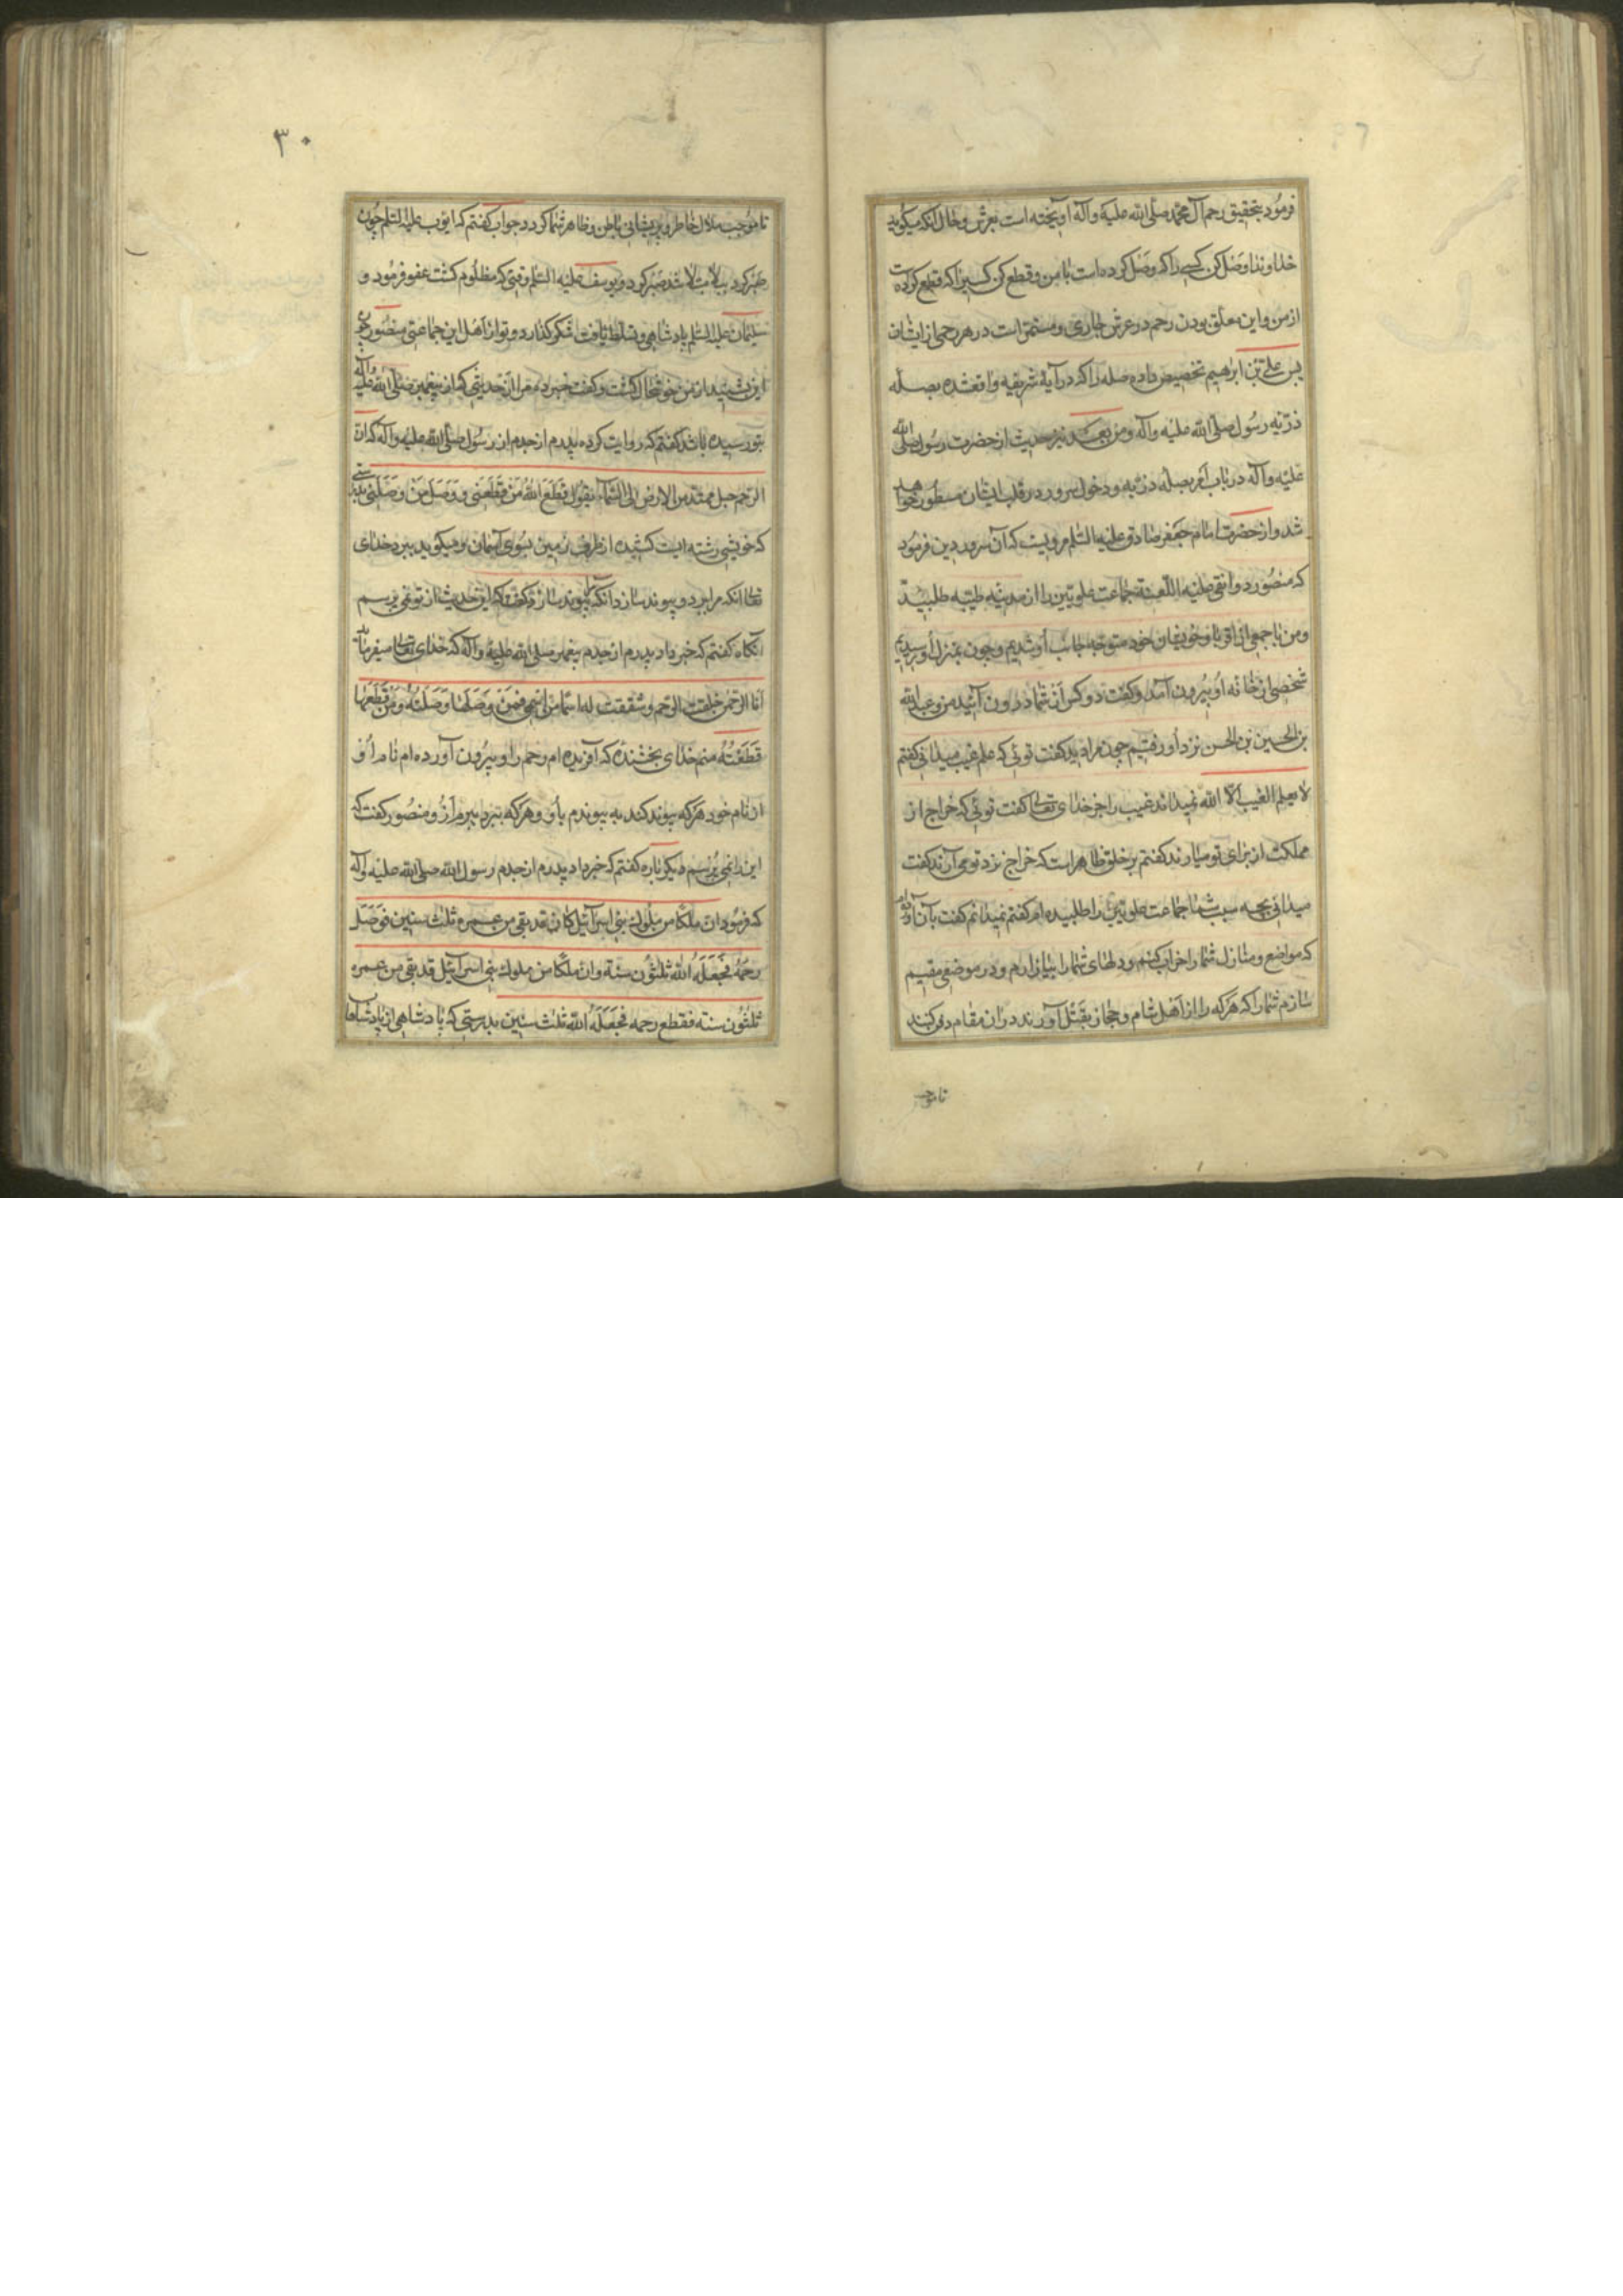 فرمود بتحقیق رحم آل محمد صلی الله علیه وآله اویخته است بعرش وحال آنکه میکوید
خداوندا وصل کن کسی را که وصل کرده است با من وقطع کن کسیرا که قطع کرده است
از من واین معلق بودن رحم در عرش جاری ومستمر است در هر رحمی از ایشان
پس علی بن ابرهیم تخصیص داده صله را که در آیۀ شریفه واقعشده بصله
ذرّیه رسول صلی الله علیه وآله ومن بعد نیز حدیث از حضرت رسول صلی الله
علیه وآله در باب امر بصله ذرّیه ودخول سرور در قلب ایشان مسطور خواهد
شد واز حضرت امام جعفر صادق علیه السّلم مرویست که آن سرور دین فرمود
که منصور دوانقی علیه اللّعنة جماعت علویّین را از مدینه طیّبه طلبید
ومن با جمعی از اقربا وخویشان خود متوجه جانب او شدیم وچون بمنزل او رسیدیم
شخصی از خانه او بیرون آمد وکفت دو کس از شما در ون آئید من وعبدالله
بن الحسین بن الحسن نزد او رفتیم چون مرا دید کفت توئی که علم غیب میدانی کفتم
لا یعلم الغیب الا الله نمیداند غیب را جز خدای تعالی کفت توئی که خراج از
مملکت از برای تو میارند کفتم بر خلق ظاهر است که خراج نزد تو می آرند کفت
میدانی بچه سبب شما جماعت علویّین را طلبیده ام کفتم نمیدانم کفت بآن اراده
که مواضع ومنازل شما را خراب کنم ودلهای شما را بیازارم ودر موضعی مقیم
سازم شما را که هرکه را از اهل شام وحجاز بقتل آورند در ان مقام دفن کنند
تا موجب
۳۰
تا موجب ملال خاطر وپریشانی باطن وظاهر شما کردد جواب کفتم که ایّوب علیه السّلم چون
صبر کرد ویوسف علیه السّلم وقتی که مظلوم کشت عفو فرمود و
سلیمان علیه السّلم پادشاهی وتسلط یافت شکر کذارد وتو از اهل این جماعتی منصور چون
این بشنید از من خوشحال کشت وکفت خبر ده مرا از حدیثی که از پیغمبر صلی الله علیه وآله
بتو رسیده باشد کفتم که روایت کرده پدرم از جدم از رسول صلی الله علیه وآله که ان
الرّحم حبل ممتد من الارض الی السّمآء یقول قطع الله من قطعنی ووصل من وصلنی بدرستی
که خویشی رشته ایست کشیده از طرف زمین بسوی آسمان ومیکوید ببرد خدای
تعالی انکه مرا برد وپیوند سازد انکه پیوند سازد کفت که این حدیث از تو نمی پرسم
آنکاه کفتم که خبر داد پدرم از جدم پیغمبر صلی الله علیه وآله که خدای تعالی میفرماید
انا الرّحمن خلقت الرّحم وشققت له اسما من اسمی فمن وصلها وصلته ومن قطعها
قطعته منم خدای بخشنده که آفریده ام رحم را وبیرون آورده ام نام او
از نام خود هرکه پیوند کند به پیوندم باو وهرکه ببرد ببرم از و منصور کفت که
این را نمی پرسم دیکر باره کفتم که خبر داد پدرم از جدم رسول الله صلی الله علیه وآله
که فرمود ان ملکا من ملوک بنی اسرآئیل کان قد بقی من عمره ثلث سنین فوصل
رحمه فجعله الله ثلثون سنة وان ملکا من ملوک بنی اسرآئیل قد بقی من عمره
ثلثون سنة فقطع رحمه فجعله الله ثلث سنین بدرستی که پادشاهی از پادشاهان